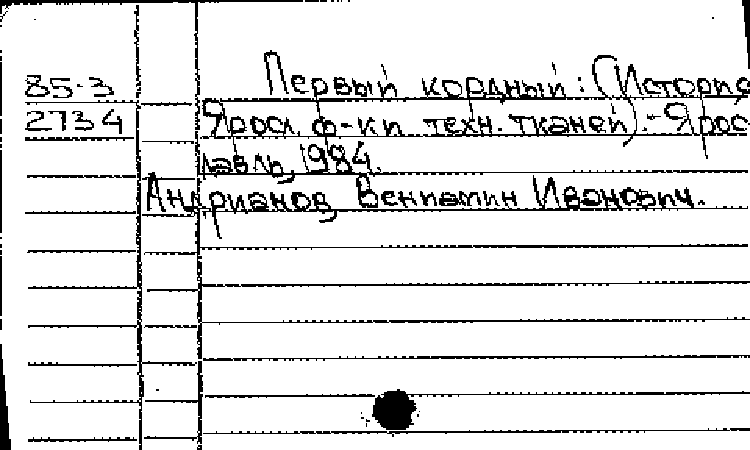 85-3 Первый кордный: (История
2734 Яросл. ф-ки техн. тканей).-Ярос-
лавль, 1984.
Андрианов Вениамин Иванович.